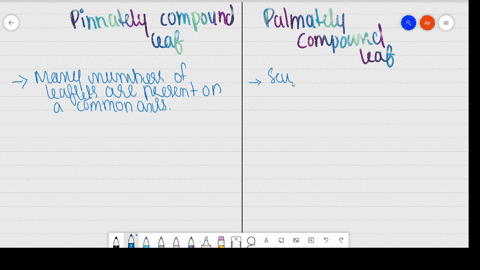 Pinnately compound
leaf
Palmately
compound
leaf
→ Many numbers of
leaflets are present on
a common axis.
→